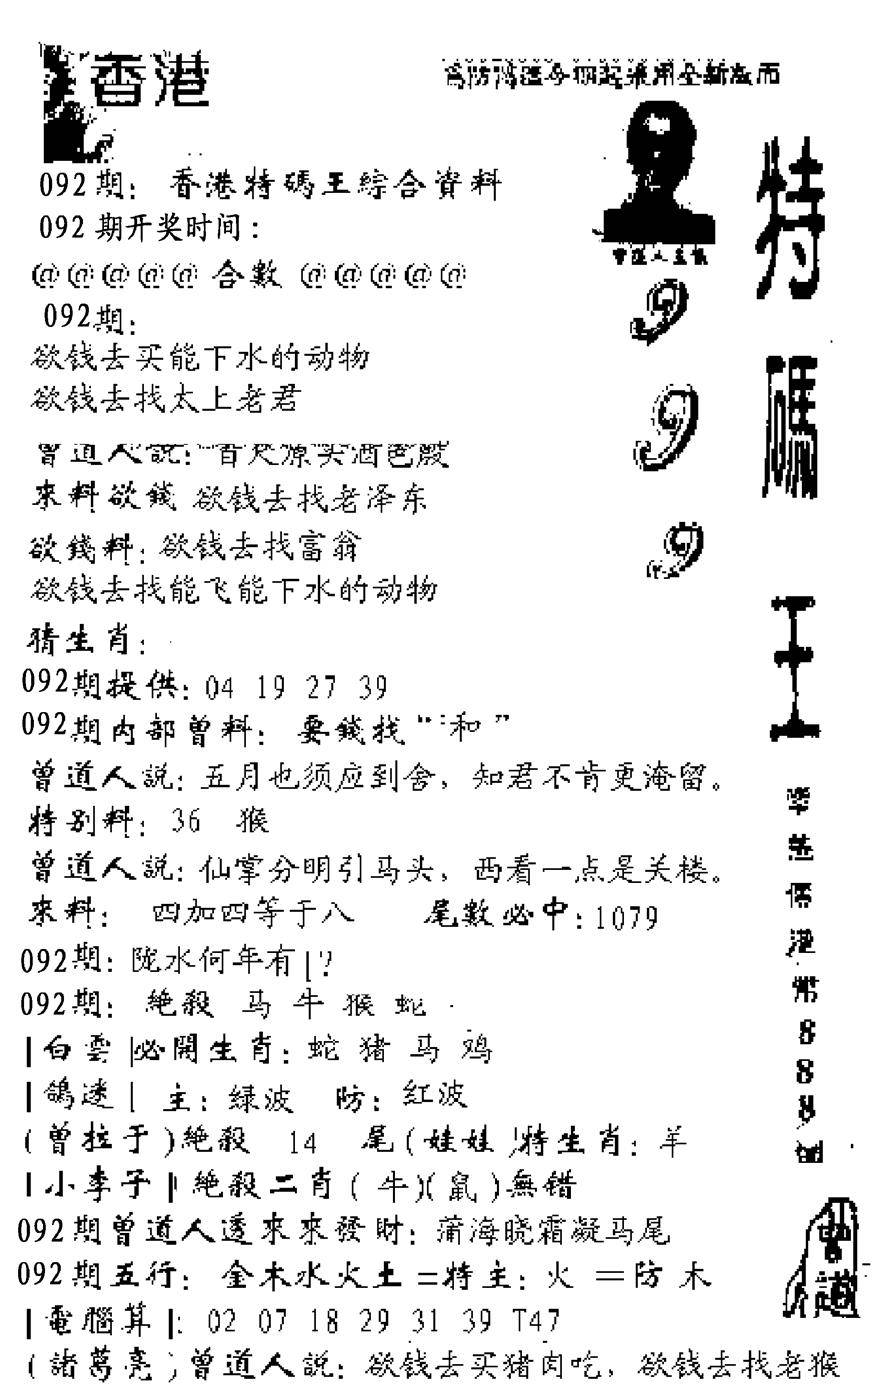 香港
092期：香港特碼王綜合資料
092期开奖时间：
@@@@@合數@@@@@
092期：
欲钱去买能下水的动物
欲钱去找太上老君
曾道人說：
來料欲錢 欲钱去找老泽东
欲錢料：欲钱去找富翁
欲钱去找能飞能下水的动物
猜生肖：
092期提供：04 19 27 39
092期内部曾料：要錢找“和”
曾道人說：五月也须应到舍，知君不肯更淹留。
特别料：36 猴
曾道人說：仙掌分明引马头，西看一点是关楼。
來料：四加四等于八 尾數必中：1079
092期：陇水何年有|?
092期：絶殺 马 牛 猴 蛇
|白雲|必開生肖：蛇 猪 马 鸡
|鴿迷| 主：绿波 防：红波
(曾拉于)絶殺 14 尾(娃娃)特生肖：羊
|小李子|絶殺二肖(牛)(鼠)無错
092期曾道人透來來發財：蒲海晓霜凝马尾
092期五行：金木水火土=特主：火 =防 木
|電腦算|：02 07 18 29 31 39 T47
(諸葛亮)曾道人說：欲钱去买猪肉吃，欲钱去找老猴
特碼王
9
9
9
888
曾道